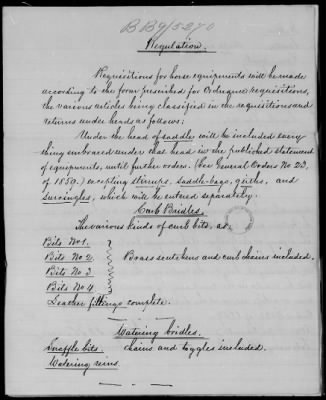 BB9/5270
Regulation.
Requisitions for horse equipments will be made
according to the form prescribed for Ordnance requisitions,
the various articles being classified in the requisitions and
returns under heads as follows:
Under the head of saddle will be included every
thing embraced under that head in the published statement
of equipments, until further orders. (See General Orders No 23,
of 1859.) excepting stirrups, saddle-bags, girths, and
surcingles, which will be entered separately.
Curb Bridles.
The various kinds of curb bits, as
Bits No 1.
Bits No 2. Brass scutcheons and curb chains included.
Bits No 3
Bits No 4
Leather fittings complete.
Watering bridles.
Snaffle bits. chains and toggles included.
Watering reins.